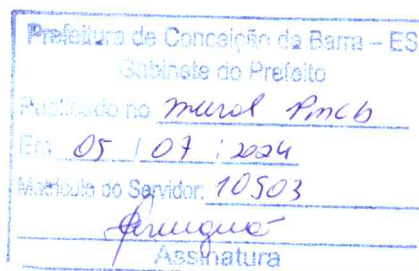 Prefeitura de Conceição da Barra – ES
Gabinete do Prefeito
Publicado no mural Pmcb
Em 05 / 07 / 2024
Matrícula do Servidor: 10503
Assinatura